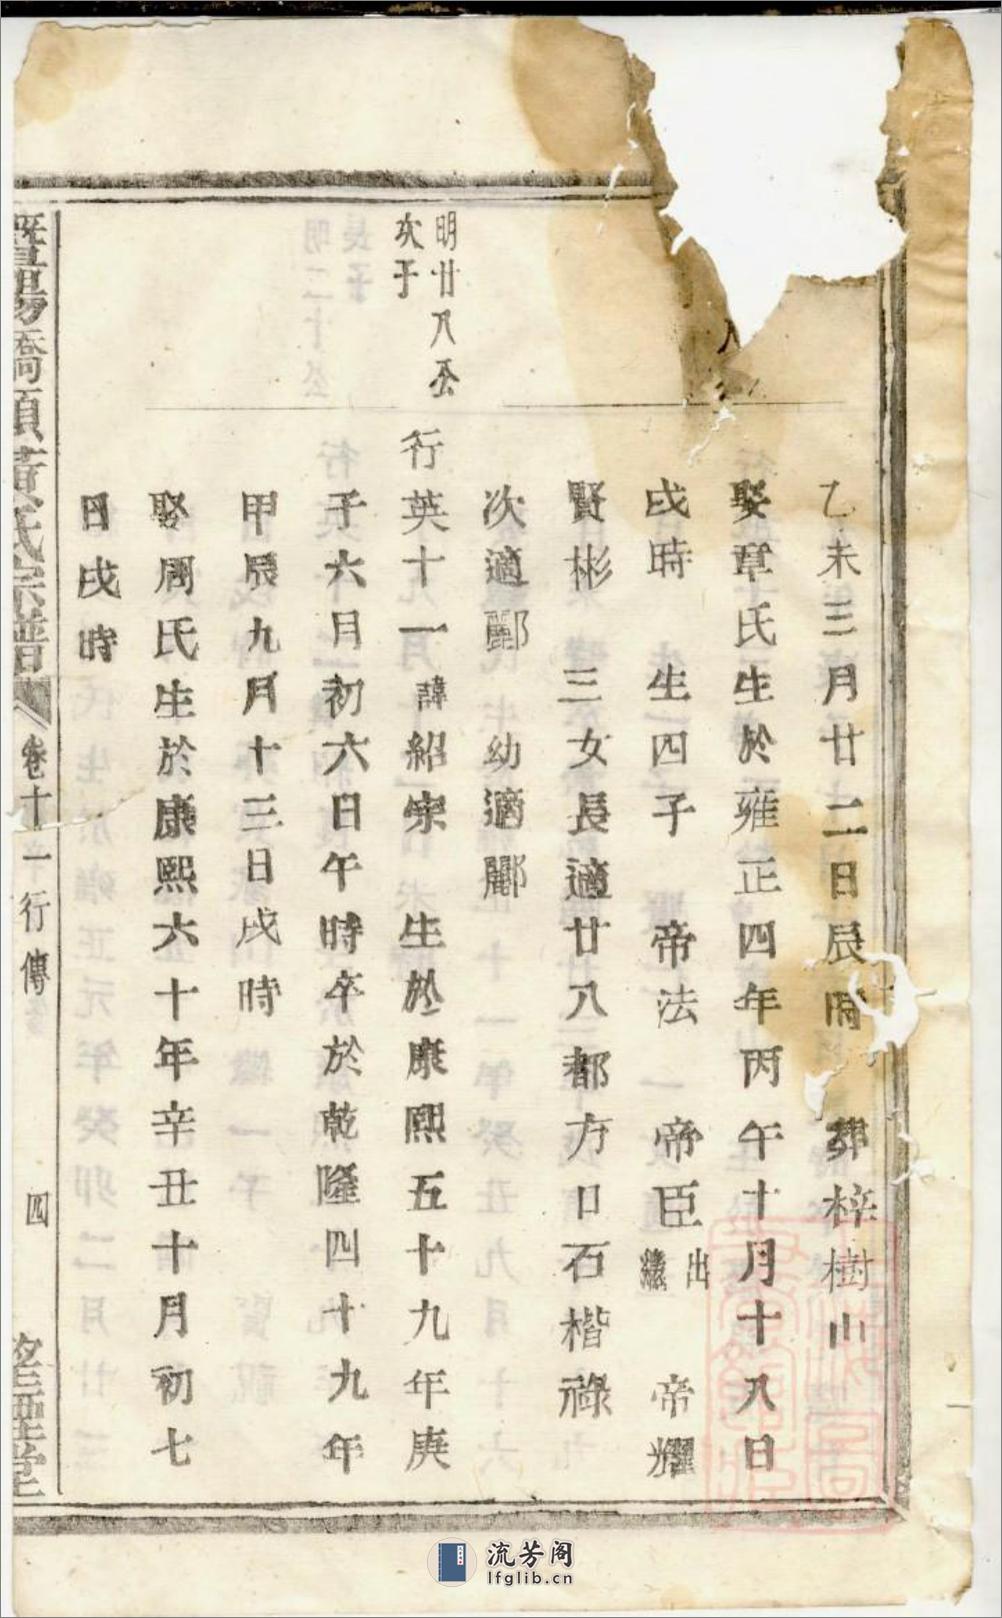 乙未三月廿二日辰時 葬梓樹山
娶章氏生於雍正四年丙午十月十八日
戌時 生四子 帝法 帝臣出繼 帝耀
賢彬 三女長適廿八都方口石楷祿
次適酈 幼適酈
明廿八公
次子
行英十一諱紹宗 生於康熙五十九年庚
子六月初六日午時卒於乾隆四十九年
甲辰九月十三日戌時
娶周氏生於康熙六十年辛丑十月初七
日戌時
暨陽橋頂黃氏宗譜 卷十一行傳 四
流芳阁
lfglib.cn